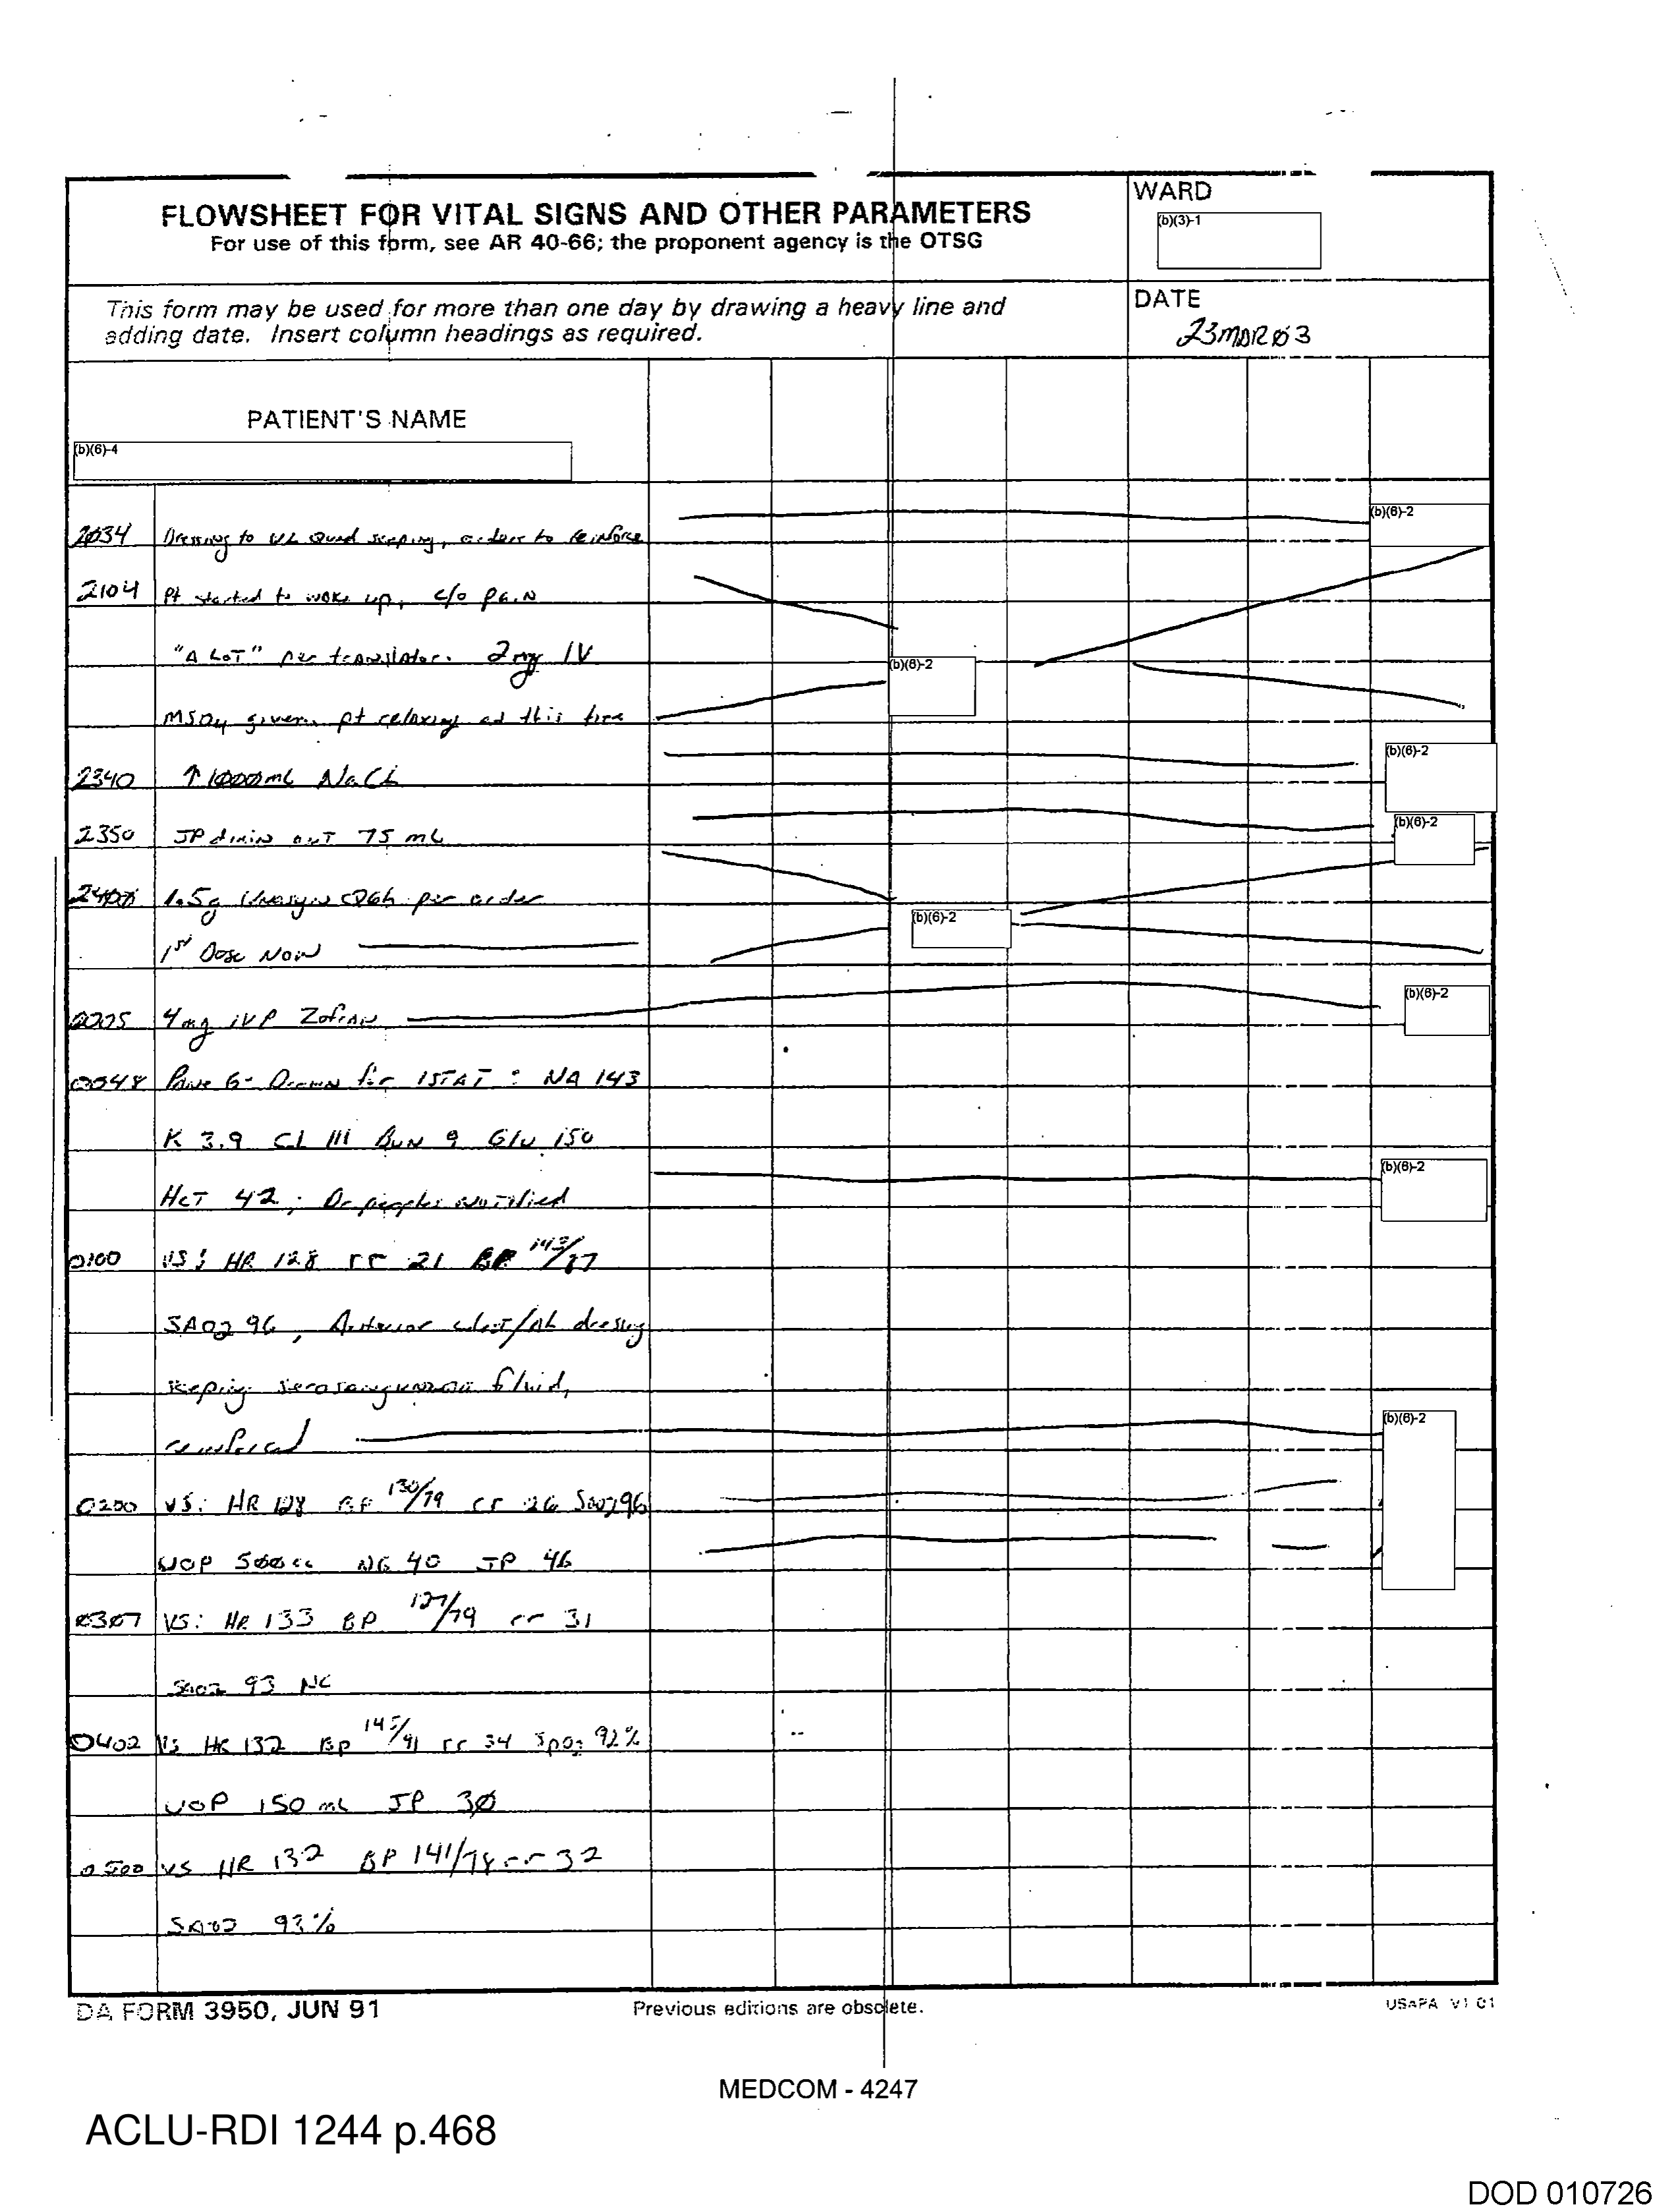 FLOWSHEET FOR VITAL SIGNS AND OTHER PARAMETERS
For use of this form, see AR 40-66; the proponent agency is the OTSG
WARD
(b)(3)-1
This form may be used for more than one day by drawing a heavy line and
adding date. Insert column headings as required.
DATE
23MAR03
PATIENT'S NAME
(b)(6)-4
2034 Dressing to Quad seeping, orders to reinforce
(b)(6)-2
2104 Pt started to wake up, c/o pain
"A LOT" per translator. 2mg IV
(b)(6)-2
MSO4 given. pt relaxing at this time
2340 ↑ 1000mL NaCl
(b)(6)-2
2350 JP drain out 75 mL
(b)(6)-2
2400 1.5g Unasyn Q6h per order
1st Dose Now
(b)(6)-2
4mg IVP Zofran
(b)(6)-2
0048 6- Drawn for ISTAT: NA 143
K 3.9 CL 111 BUN 9 Glu 150
HCT 42; Dr notified
(b)(6)-2
0100 VS: HR 128 rr 21 BP 143/87
SAO2 96, Anterior chest/Ab dressing
seeping fluid,
reinforced
(b)(6)-2
0200 VS: HR 128 BP 130/79 rr 26 SaO2 96
UOP 500cc NG 40 JP 46
0307 VS: HR 133 BP 127/79 rr 31
SaO2 93 NC
0402 VS HR 132 BP 145/91 rr 34 SpO2 92%
UOP 150 mL JP 30
0500 VS HR 132 BP 141/78 rr 32
SAO2 93%
DA FORM 3950, JUN 91
Previous editions are obsolete.
USAPA V1.01
MEDCOM - 4247
ACLU-RDI 1244 p.468
DOD 010726